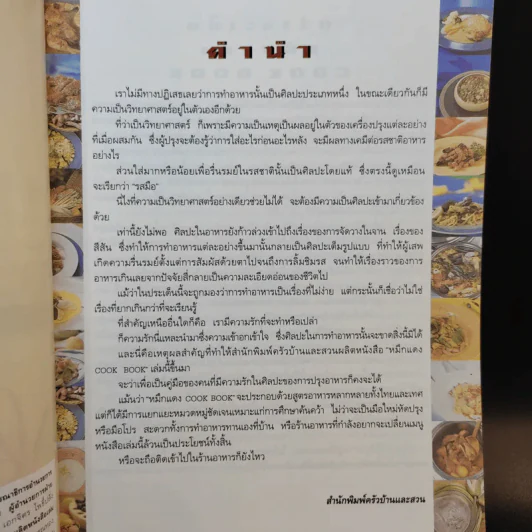 คำนำ
เราไม่มีทางปฏิเสธเลยว่าการทำอาหารนั้นเป็นศิลปะประเภทหนึ่ง ในขณะเดียวกันก็มี
ความเป็นวิทยาศาสตร์อยู่ในตัวเองอีกด้วย
ที่ว่าเป็นวิทยาศาสตร์ ก็เพราะมีความเป็นเหตุเป็นผลอยู่ในตัวของเครื่องปรุงแต่ละอย่าง
ที่เมื่อผสมกัน ซึ่งผู้ปรุงจะต้องรู้ว่าการใส่อะไรก่อนอะไรหลัง จะมีผลทางเคมีต่อรสชาติอาหาร
อย่างไร
ส่วนใส่มากหรือน้อยเพื่อรื่นรมย์ในรสชาตินั้นเป็นศิลปะโดยแท้ ซึ่งตรงนี้ดูเหมือน
จะเรียกว่า "รสมือ"
นี่ไงที่ความเป็นวิทยาศาสตร์อย่างเดียวช่วยไม่ได้ จะต้องมีความเป็นศิลปะเข้ามาเกี่ยวข้อง
ด้วย
เท่านี้ยังไม่พอ ศิลปะในอาหารยังก้าวล่วงเข้าไปถึงเรื่องของการจัดวางในจาน เรื่องของ
สีสัน ซึ่งทำให้การทำอาหารแต่ละอย่างขึ้นมานั้นกลายเป็นศิลปะเต็มรูปแบบ ที่ทำให้ผู้เสพ
เกิดความรื่นรมย์ตั้งแต่การสัมผัสด้วยตาไปจนถึงการลิ้มชิมรส จนทำให้เรื่องราวของการ
อาหารเกินเลยจากปัจจัยสี่กลายเป็นความละเอียดอ่อนของชีวิตไป
แม้ว่าในประเด็นนี้จะถูกมองว่าการทำอาหารเป็นเรื่องที่ไม่ง่าย แต่กระนั้นก็เชื่อว่าไม่ใช่
เรื่องที่ยากเกินกว่าที่จะเรียนรู้
ที่สำคัญเหนืออื่นใดก็คือ เรามีความรักที่จะทำหรือเปล่า
ก็ความรักนี่แหละนำมาซึ่งความเข้าอกเข้าใจ ซึ่งศิลปะในการทำอาหารนั้นจะขาดสิ่งนี้มิได้
และนี่คือเหตุผลสำคัญที่ทำให้สำนักพิมพ์ครัวบ้านและสวนผลิตหนังสือ "หมึกแดง
COOK BOOK" เล่มนี้ขึ้นมา
จะว่าเพื่อเป็นคู่มือของคนที่มีความรักในศิลปะของการปรุงอาหารก็คงจะได้
แม้นว่า "หมึกแดง COOK BOOK" จะประกอบด้วยสูตรอาหารหลากหลายทั้งไทยและเทศ
แต่ก็ได้มีการแยกแยะหมวดหมู่ชัดเจนเหมาะแก่การศึกษาค้นคว้า ไม่ว่าจะเป็นมือใหม่หัดปรุง
หรือมือโปร สะดวกทั้งการทำอาหารทานเองที่บ้าน หรือร้านอาหารที่กำลังอยากจะเปลี่ยนเมนู
หนังสือเล่มนี้ล้วนเป็นประโยชน์ทั้งสิ้น
หรือจะถือติดเข้าไปในร้านอาหารก็ยังไหว
สำนักพิมพ์ครัวบ้านและสวน